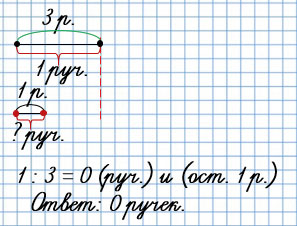 3 р.
1 руч.
1 р.
? руч.
1 : 3 = 0 (руч.) и (ост. 1 р.)
Ответ: 0 ручек.